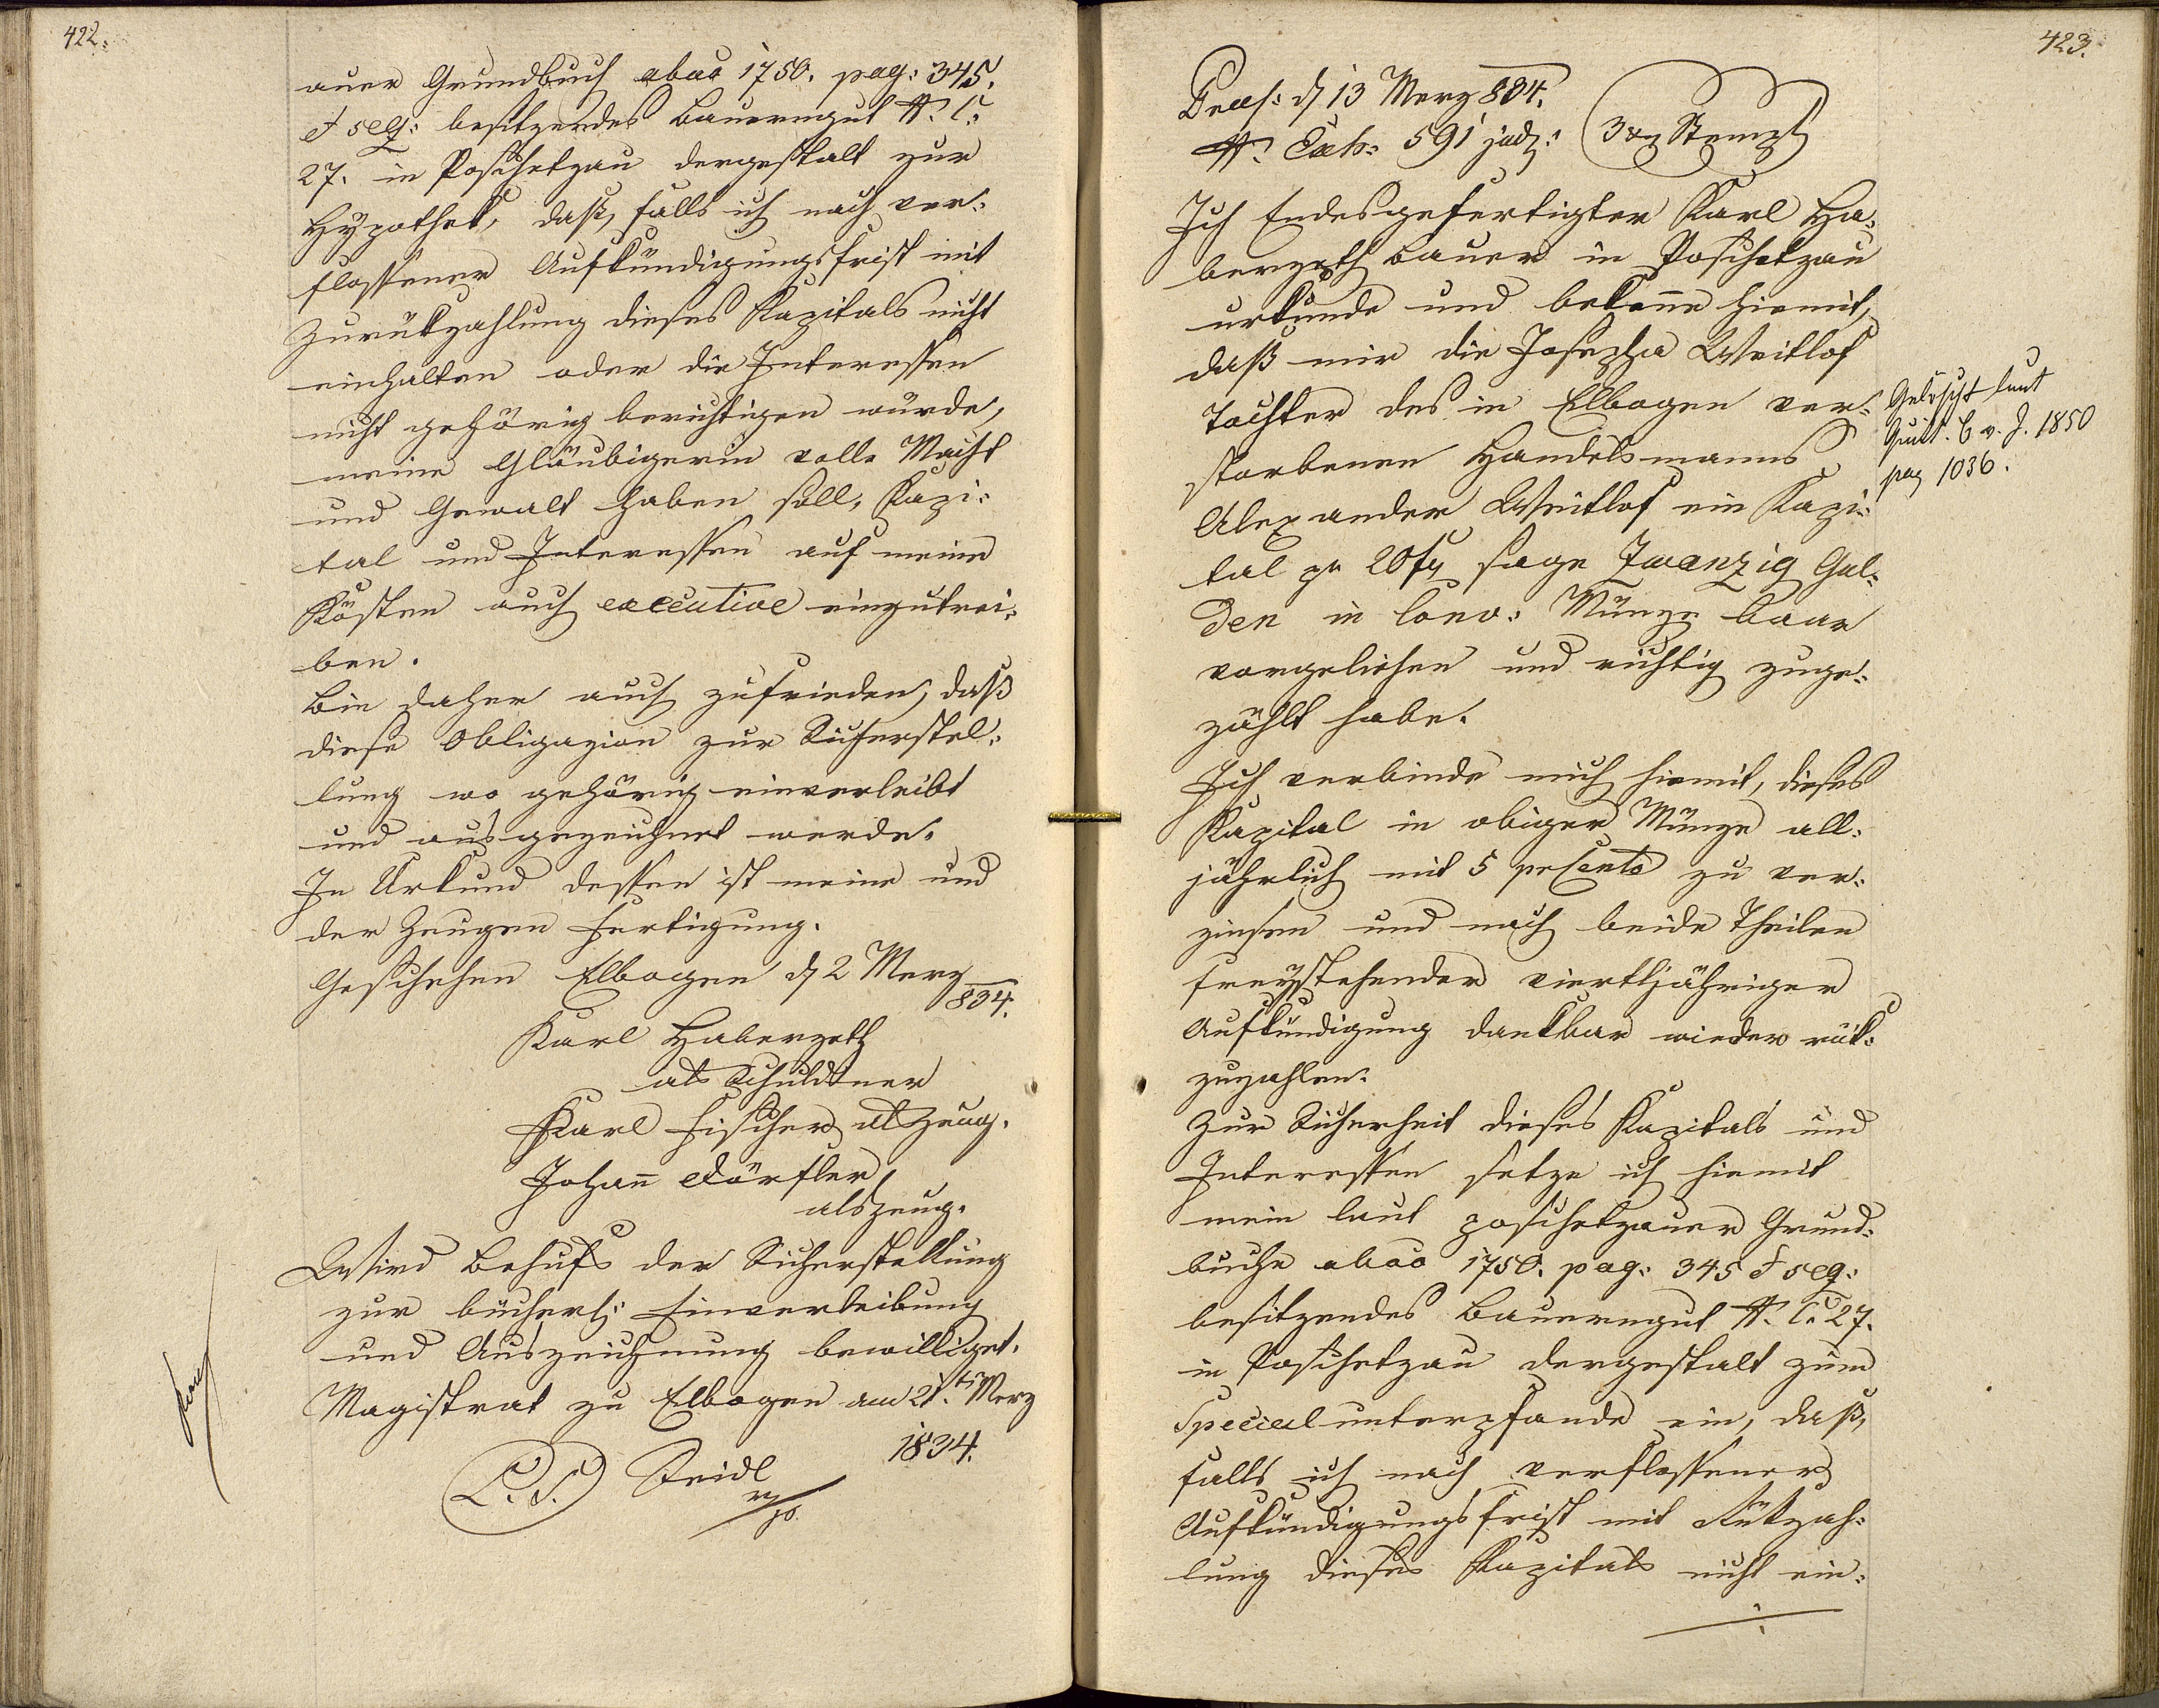 422.
auer Grundbuch abao 1750. pag: 345.
et seq: besitzendes Bauerngut N. C.
27. in Poschetzau dergestalt zur
Hypothek, daß, falls ich nach ver¬
flossener Aufkündigungsfrist mit
Zurükzahlung dieses Kapitals nicht
einhalten oder die Interessen
nicht gehörig berichtigen würde,
meine Gläubigerin volle Macht
und Gewalt haben soll, Kapi¬
tal und Interessen auf meine
Kösten auch executive einzutrei¬
ben.
Bin daher auch zufrieden, daß
diese Obligazion zur Sicherstel¬
lung wo gehörig einverleibt
und ausgezeichnet werde.
In Urkund dessen ist meine und
der Zeugen Fertigung.
Geschehen Elbogen d. 2 Merz
834.
Karl Haberzeth
als Schuldner
Karl Fischer als Zeug.
Johann Dörfler,
als Zeug.
Wird Behufs der Sicherstellung
zur bücherl: Einverleibung
und Auszeichnung bewilliget.
Magistrat zu Elbogen am 21.ten Merz
1834.
L. S. Seidl
mp.
423.
Præs: d. 13 Merz 834.
N. Exh: 591 jud: 3 xr Stempl
Ich Endesgefertigter Karl Ha¬
berzeth Bauer in Poschetzau
urkunde und bekenne hiemit,
daß mir die Josepha Weitlof
Tochter des in Elbogen ver¬
storbenen Handelsmanns
Alexander Weitlof ein Kapi¬
tal pr 20 fl sage Zwanzig Gul¬
den in Conv: Münze baar
vorgeliehen und richtig zuge¬
zählt habe.
Gelöscht laut
Quitt. B v. J. 1850
pag 1036.
Ich verbinde mich hiemit, dieses
Kapital in obiger Münze all¬
jährlich mit 5 prCento zu ver¬
zinsen und nach beide Theilen
freystehender vierteljähriger
Aufkündigung dankbar wieder rük¬
zuzahlen.
Zur Sicherheit dieses Kapitals und
Interessen setze ich hiemit
mein laut poschetzauer Grund¬
buche abao 1750. pag: 345 et seq:
besitzendes Bauerngut N. C. 27.
in Poschetzau dergestalt zum
Specialunterpfande ein, daß,
falls ich nach verflossener
Aufkündigungsfrist mit Rükzah¬
lung dieses Kapitals nicht ein¬